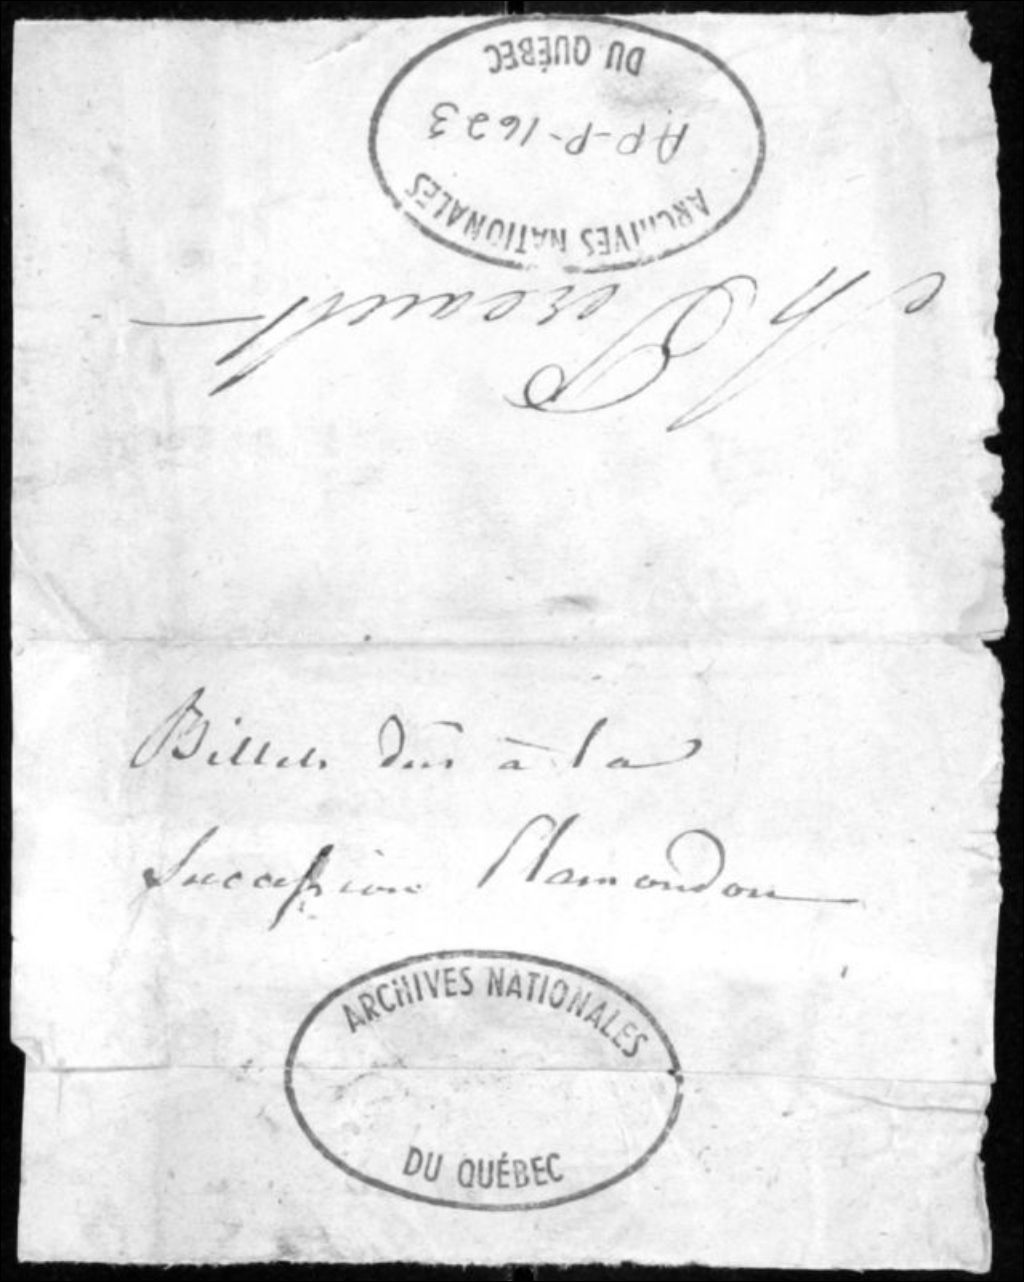 ARCHIVES NATIONALES
AP-P-1623
DU QUÉBEC
Perrault
Billets dus à la
Succession Plamondon
ARCHIVES NATIONALES
DU QUÉBEC